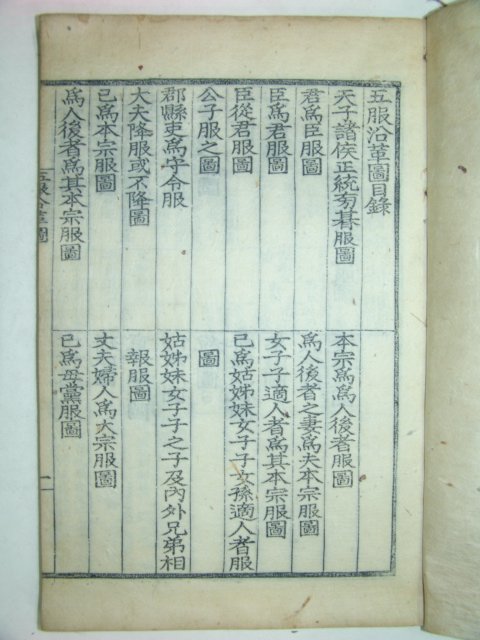 五服沿革圖目錄
天子諸侯正統旁朞服圖
君爲臣服圖
臣爲君服圖
臣從君服圖
公子服之圖
郡縣吏爲守令服
大夫降服或不降圖
已爲本宗服圖
爲人後者爲其本宗服圖
本宗爲爲人後者服圖
爲人後者之妻爲夫本宗服圖
女子子適人者爲其本宗服圖
已爲姑姊妹女子子女孫適人者服
圖
姑姊妹女子子之子及內外兄弟相
報服圖
丈夫婦人爲大宗服圖
已爲母黨服圖